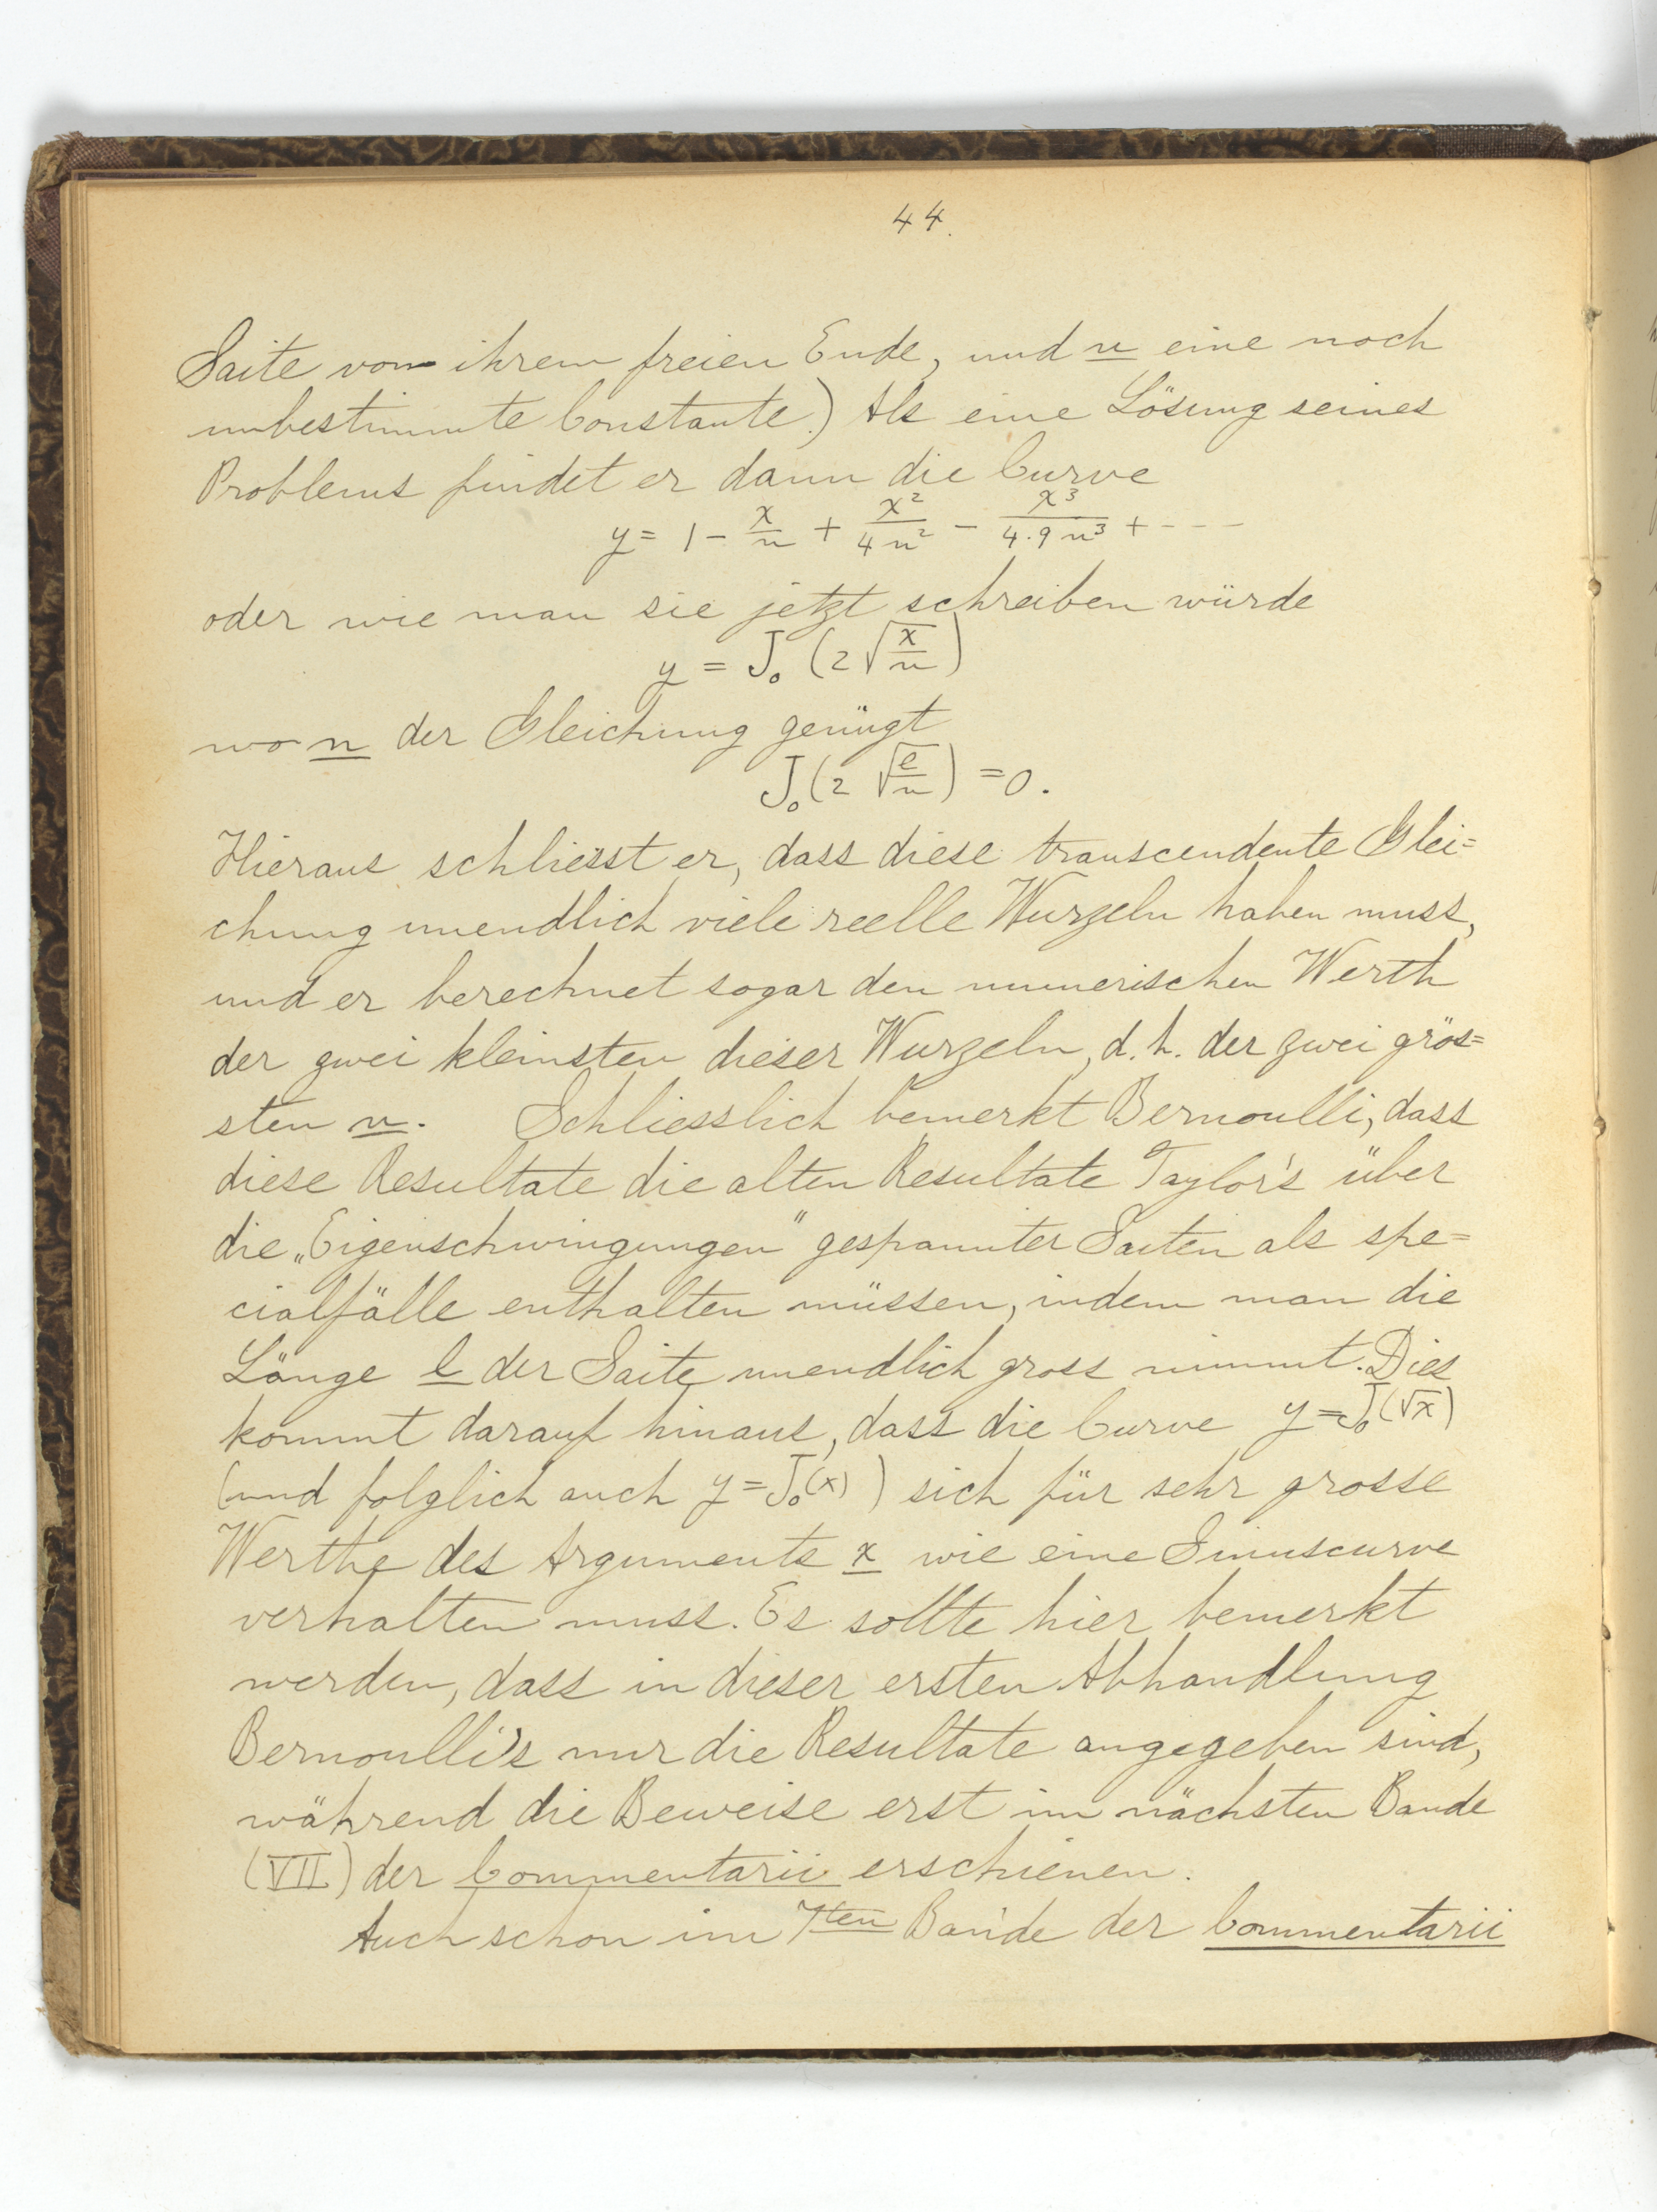 44.
Saite vom ihrem freien Ende, und n eine noch
unbestimmte Constante.) Als eine Lösung seines
Problems findet er dann die Curve
y = 1 - x/n + x²/4n² - x³/4·9n³ + - - -
oder wie man sie jetzt schreiben würde
y = J₀ (2√(x/n))
wo n der Gleichung genügt
J₀ (2√(l/n)) = 0.
Hieraus schliesst er, dass diese transcendente Glei=
chung unendlich viele reelle Wurzeln haben muss,
und er berechnet sogar den numerischen Werth
der zwei kleinsten dieser Wurzeln, d.h. der zwei grös=
sten n. Schliesslich bemerkt Bernoulli, dass
diese Resultate die alten Resultate Taylor's über
die „Eigenschwingungen" gespannter Saiten als spe=
cialfälle enthalten müssen, indem man die
Länge l der Saite unendlich gross nimmt. Dies
kommt darauf hinaus, dass die Curve y=J₀(√x)
(und folglich auch y=J₀(x)) sich für sehr grosse
Werthe des Arguments x wie eine Sinuscurve
verhalten muss. Es sollte hier bemerkt
werden, dass in dieser ersten Abhandlung
Bernoulli's nur die Resultate angegeben sind,
während die Beweise erst im nächsten Bande
(VII) der Commentarii erschienen.
Auch schon im 7ten Bande der Commentarii